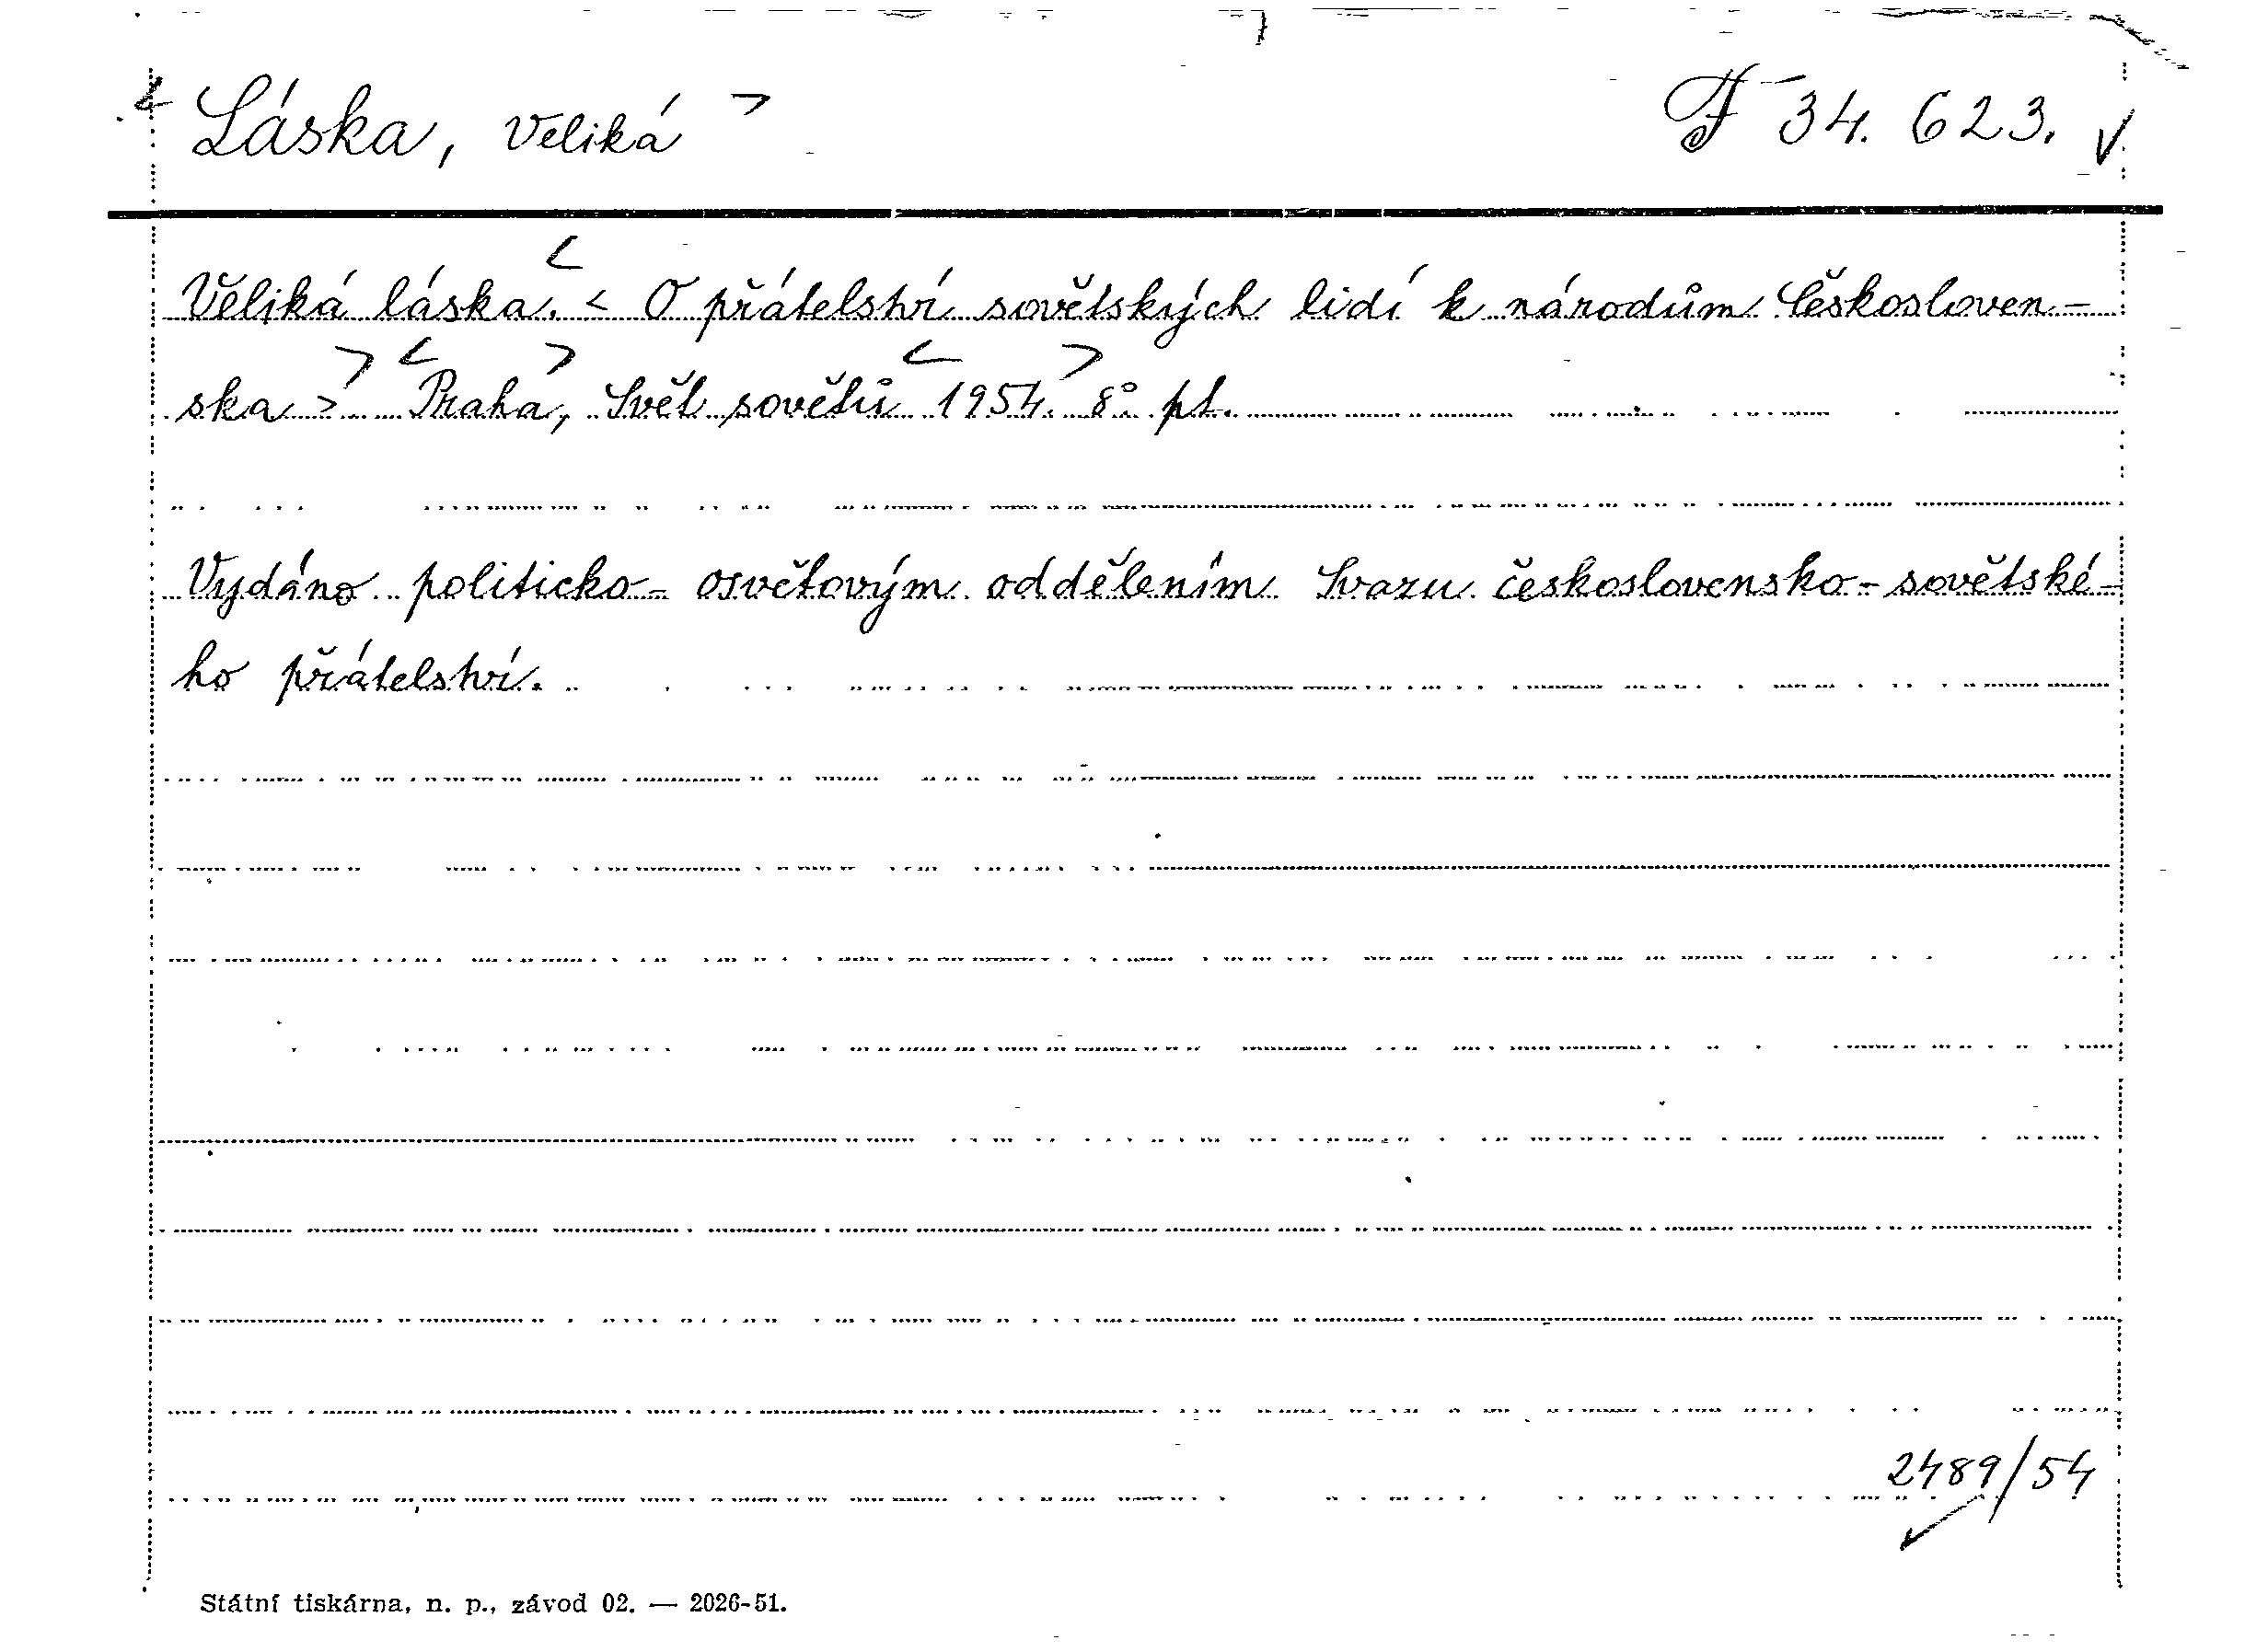 < Láska, Veliká > F 34.623. √
Veliká láska. < O přátelství sovětských lidí k národům Českosloven-
ska > Praha, Svět sovětů 1954. 8° pt.
Vydáno politicko-osvětovým oddělením Svazu československo-sovětské-
ho přátelství.
2489/54
Státní tiskárna, n. p., závod 02. — 2026-51.